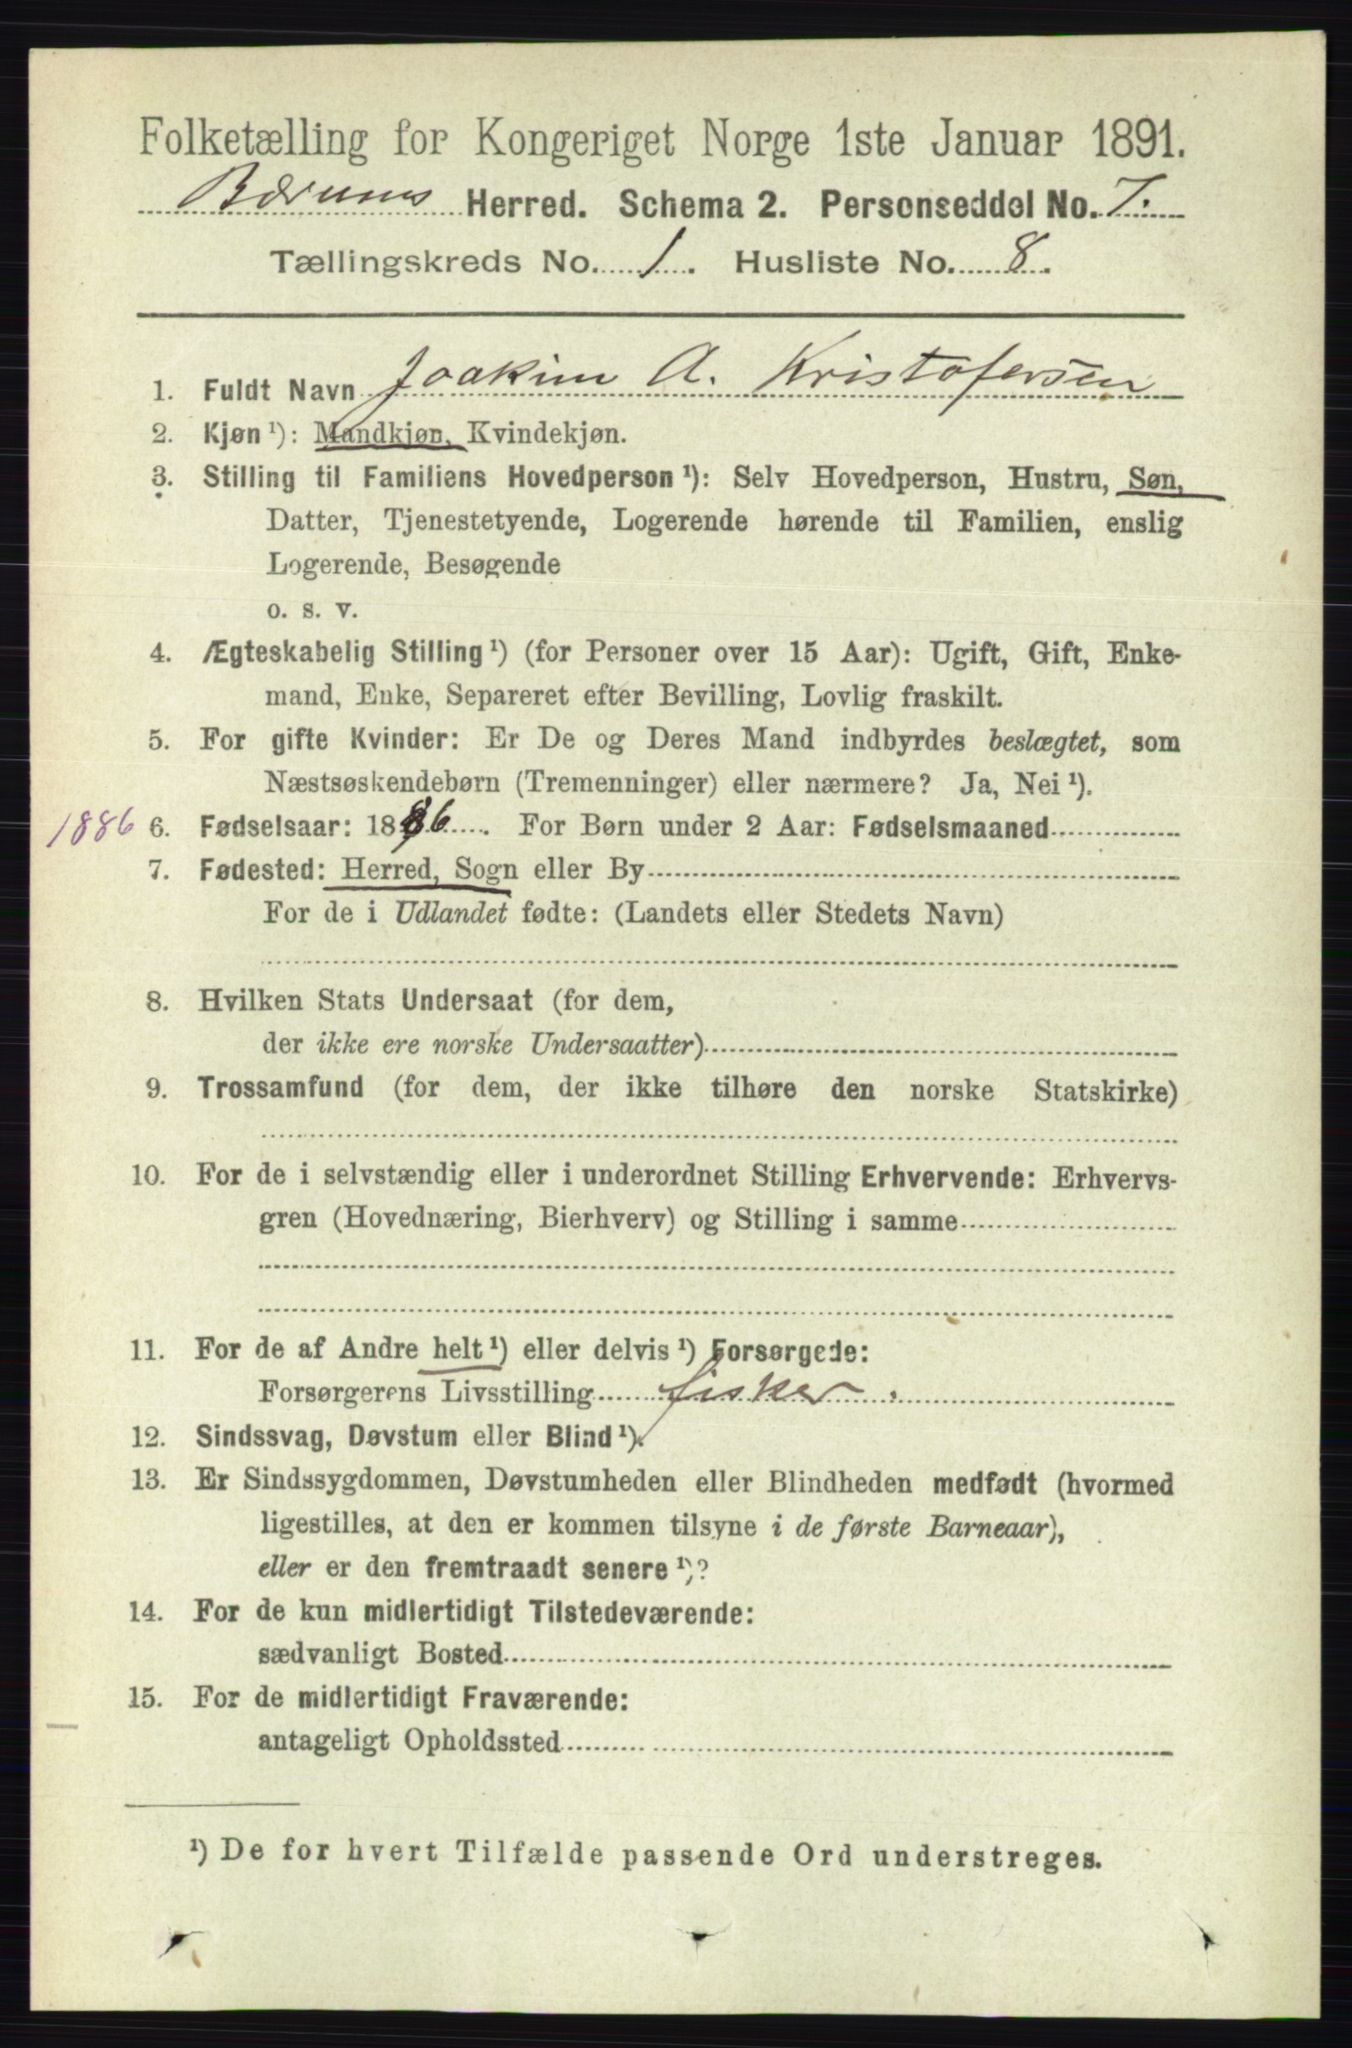 Folketælling for Kongeriget Norge 1ste Januar 1891.
Bærums Herred. Schema 2. Personseddel No. 7.
Tællingskreds No. 1. Husliste No. 8.
1. Fuldt Navn Joakim A. Kristofersen
2. Kjøn ¹): Mandkjøn, Kvindekjøn.
3. Stilling til Familiens Hovedperson ¹): Selv Hovedperson, Hustru, Søn,
Datter, Tjenestetyende, Logerende hørende til Familien, enslig
Logerende, Besøgende
o. s. v.
4. Ægteskabelig Stilling ¹) (for Personer over 15 Aar): Ugift, Gift, Enke-
mand, Enke, Separeret efter Bevilling, Lovlig fraskilt.
5. For gifte Kvinder: Er De og Deres Mand indbyrdes beslægtet, som
Næstsøskendebørn (Tremenninger) eller nærmere? Ja, Nei ¹).
1886 6. Fødselsaar: 1886. For Børn under 2 Aar: Fødselsmaaned
7. Fødested: Herred, Sogn eller By
For de i Udlandet fødte: (Landets eller Stedets Navn)
8. Hvilken Stats Undersaat (for dem,
der ikke ere norske Undersaatter)
9. Trossamfund (for dem, der ikke tilhøre den norske Statskirke)
10. For de i selvstændig eller i underordnet Stilling Erhvervende: Erhvervs-
gren (Hovednæring, Bierhverv) og Stilling i samme
11. For de af Andre helt ¹) eller delvis ¹) Forsørgede:
Forsørgerens Livsstilling fisker.
12. Sindssvag, Døvstum eller Blind ¹).
13. Er Sindssygdommen, Døvstumheden eller Blindheden medfødt (hvormed
ligestilles, at den er kommen tilsyne i de første Barneaar),
eller er den fremtraadt senere ¹)?
14. For de kun midlertidigt Tilstedeværende:
sædvanligt Bosted
15. For de midlertidigt Fraværende:
antageligt Opholdssted
¹) De for hvert Tilfælde passende Ord understreges.